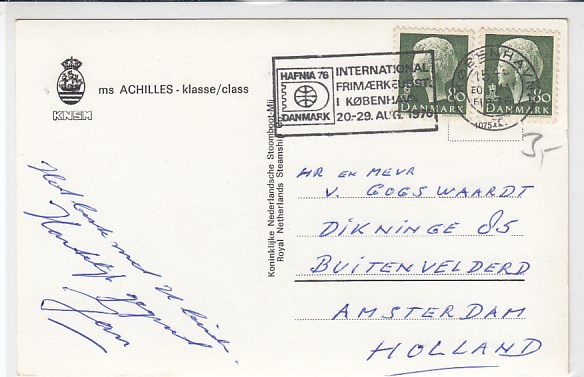 ms ACHILLES - klasse/class
KNSM
Het beste met U beide.
Hartelijk gegroet
Jan
Koninklijke Nederlandsche Stoomboot-Mij
Royal Netherlands Steamship
HAFNIA 76
DANMARK
INTERNATIONAL
FRIMÆRKEUDST.
I KØBENHAVN
20-29. AUG. 1976
DANMARK 80
DANMARK 80
KØBENHAVN
HR EN MEVR
V. GOGSWAARDT
DIKNINGE 85
BUITENVELDERD
AMSTERDAM
HOLLAND
3,-